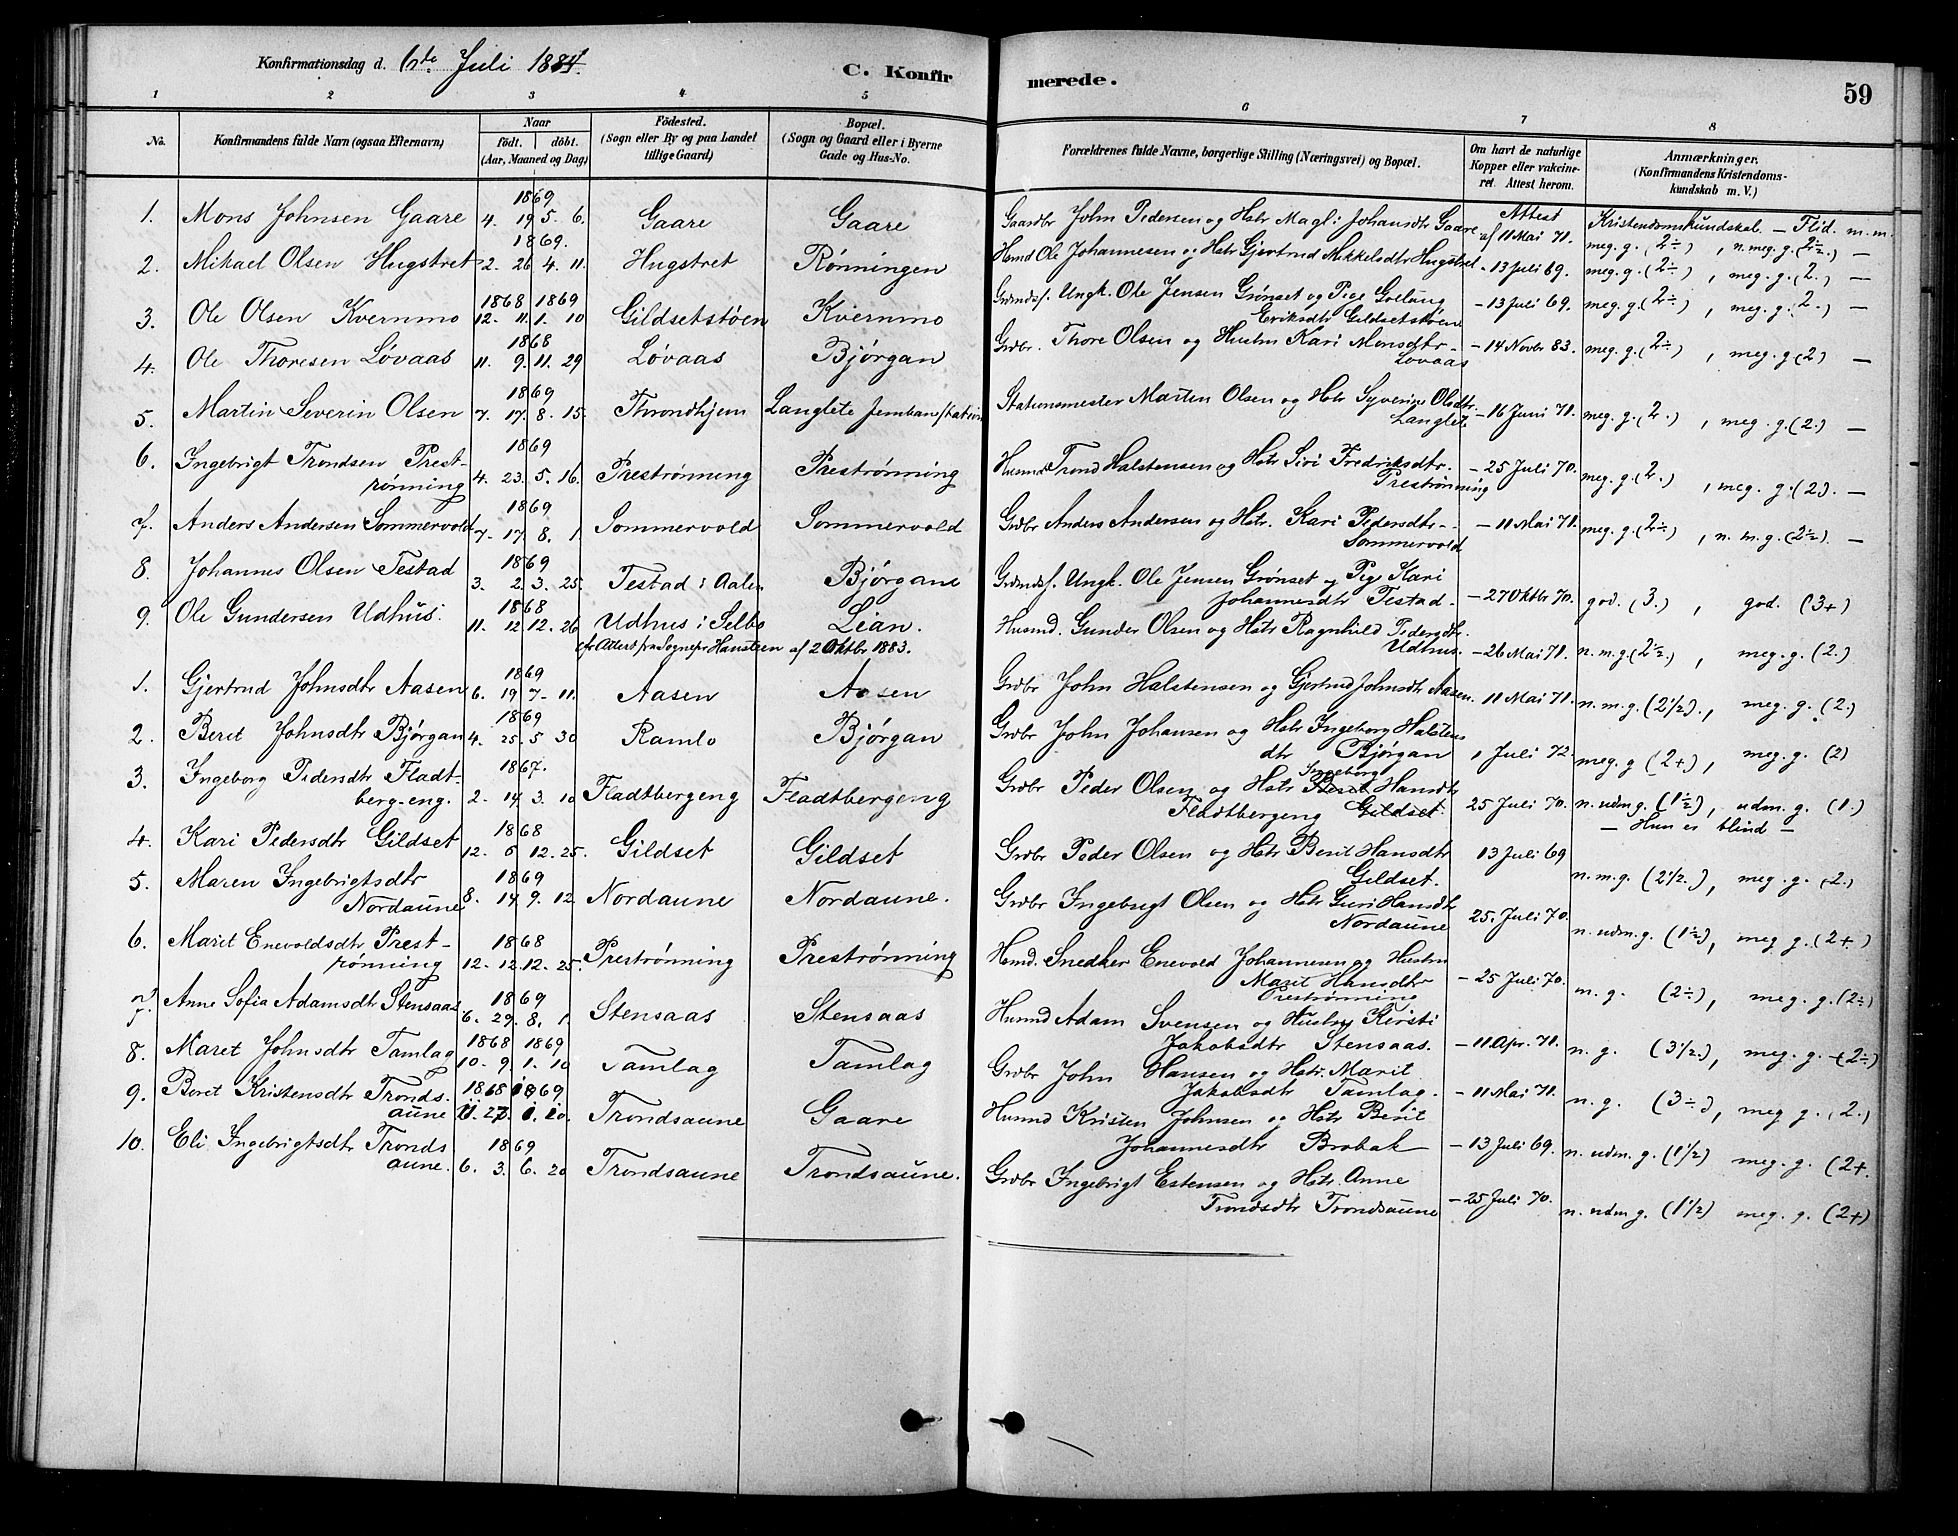 Konfirmationsdag d. 6te Juli 1884.
C. Konfirmerede.
59
1 2 3 4 5 6 7 8
No.
Konfirmandens fulde Navn (ogsaa Efternavn)
Naar
födt. döbt.
(Aar, Maaned og Dag)
Födested.
(Sogn eller By og paa Landet
tillige Gaard)
Bopæl.
(Sogn og Gaard eller i Byerne
Gade og Hus-No.
Forældrenes fulde Navne, borgerlige Stilling (Næringsvei) og Bopæl.
Om havt de naturlige
Kopper eller vakcine-
ret. Attest herom.
Anmærkninger.
(Konfirmandens Kristendoms-
kundskab m. V.)
1869 Attest Kristendomskundskab. — Flid. m. m.
1. Mons Johnsen Gaare 4. 19 5. 6. Gaare Gaare Gaardbr John Pedersen og Hstr Magli Johansdtr Gaare af 11 Mai 71. meg. g. (2÷), n. meg. g. (2½.) —
1869.
2. Mikael Olsen Hugstret 2. 26 4. 11. Hugstret Rönningen Hsmd Ole Johannesen og Hstr Gjertrud Mikkelsdtr Hugstret - 13 Juli 69. meg. g. (2÷), meg. g. (2.) —
1868 1869
3. Ole Olsen Kvernmo 12. 11. 1. 10 Gildsetstöen Kvernmo Grdmds. Ungk. Ole Jensen Grönset og Pige Goelüng
Eriksdtr Gildsetstöene - 13 Juli 69. meg. g. (2÷), meg. g. (2.) —
1868
4. Ole Thoresen Lövaas 11. 9. 11. 29 Lövaas Björgan Grdbr. Thore Olsen og Hustru Kari Monsdtr -
Lovaas - 14 Novbr 83. meg. g. (2÷), meg. g (2) —
1869
5. Martin Severin Olsen 7. 17. 8. 15. Throndhjem Langlete Jernbanestation Stationsmester Morten Olsen og Hstr Syverine Olsdtr.
Langlet. - 16 Juni 71. meg. g. (2.), meg. g. (2.) —
1869
6. Ingebrigt Trondsen Prest-
rönning 4. 23. 5. 16. Preströnning Preströnning Husmd Trond Halstensen og Hstr Siri Fredriksdtr.
Preströnning - 25 Juli 70. meg. g. (2.), meg. g. (2). —
1869
7. Anders Andersen Sommervold 7. 17. 8. 1. Sommervold Sommervold Grdbr Anders Andersen og Hstr. Kari Pedersdtr -
Sommervold - 11 Mai 71. meg. g. (2÷), n. m. g. (2½). —
1869
8. Johannes Olsen Testad 3. 2. 3. 25. Testad i Aalen Björgane Grdmds. Ungk. Ole Jensen Grönset og Pig Kari
Johannesdtr Testad. - 27 Oktbr 70. god. (3.), god. (3+)
1868
9. Ole Gundersen Udhus. 11. 12 12. 26 Udhus i Selbo Lian. Husmd. Gunder Olsen og Hstr Ragnhild Pedersdtr.
Udhus. - 26 Mai 71. n. m. g. (2½.), meg. g. (2.)
efr Attest fra Sognepr Hansteen af 2 Oktbr 1883.
1869
1. Gjertrud Johnsdtr Aasen 6. 19 7. 11. Aasen Aasen Grdbr John Halstensen og Gjertrud Johnsdtr Aasen. 11 Mai 71. n. m. g. (2½)., meg. g. (2.)
1869
2. Beret Johnsdtr Björgan 4. 25. 5 30 Ramlo Björgan Grdbr John Johansen og Hstr Ingeborg Halstens
dtr Björgan 1 Juli 72. meg. g (2+), meg. g. (2)
1867.
3. Ingeborg Pedersdtr Fladt-
berg-eng. 2. 14 3. 10 Fladtbergeng Fladtbergeng Grdbr Peder Olsen og Hstr Ingeborg Hansdtr
Fladtbergeng 25 Juli 70. n. udm. g. (1½), udm. g. (1.)
— Hun er blind —
1868
4. Kari Pedersdtr Gildset 12. 6 12. 25. Gildset Gildset Grdbr Peder Olsen og Hstr Berit Hansdtr
Gildset. 13 Juli 69 n. m. g. (2½.), meg. g. (2.)
1869
5. Maren Ingebrigtsdtr
Nordaune 8. 14 9. 12. Nordaune Nordaune. Grdbr Ingebrigt Olsen og Hstr Guri Hansdtr
Nordaune 25. Juli 70. n. udm. g. (1½), meg g. (2+)
1868
6. Marit Enevoldsdtr Prest-
rönning 12. 12. 12. 25. Preströnning Preströnning Hsmd. Snedker Enevold Johannesen og Hustru
Marit Hansdtr
Preströnning - 25 Juli 70. m. g. (2÷), meg. g. (2÷)
1869
7. Anne Sofia Adamsdtr Stensaas 6. 29. 8. 1. Stensaas Stensaas Husmd Adam Svensen og Hustru Kirsti
Jakobsdtr Stensaas. - 11 Apr. 71. n. g. (3½), meg. g. (2÷)
1868 1869
8. Maret Johnsdtr Tamlag 10. 9. 1. 10 Tamlag Tamlag Grdbr John Hansen og Hstr. Marit
Jakobsdtr Tamlag. - 11 Mai 71. n. g. (3÷), meg g. (2.)
1868 1869
9. Beret Kristensdtr Tronds-
aune 11. 27. 1. 10. Trondsaune Gaare Husmd Kristen Johnsen og Hstr Berit
Johannesdtr Brobak - 13 Juli 69. n. udm. g. (1½) meg. g. (2+.
1869
10. Eli Ingebrigtsdtr Tronds
aune. 6. 3. 6. 20 Trondsaune Trondsaune. Grdbr Ingebrigt Estensen og Hstr. Anne
Trondsdtr Trondsaune - 25 Juli 70. n. udm g. (1½) meg. g. (2+)